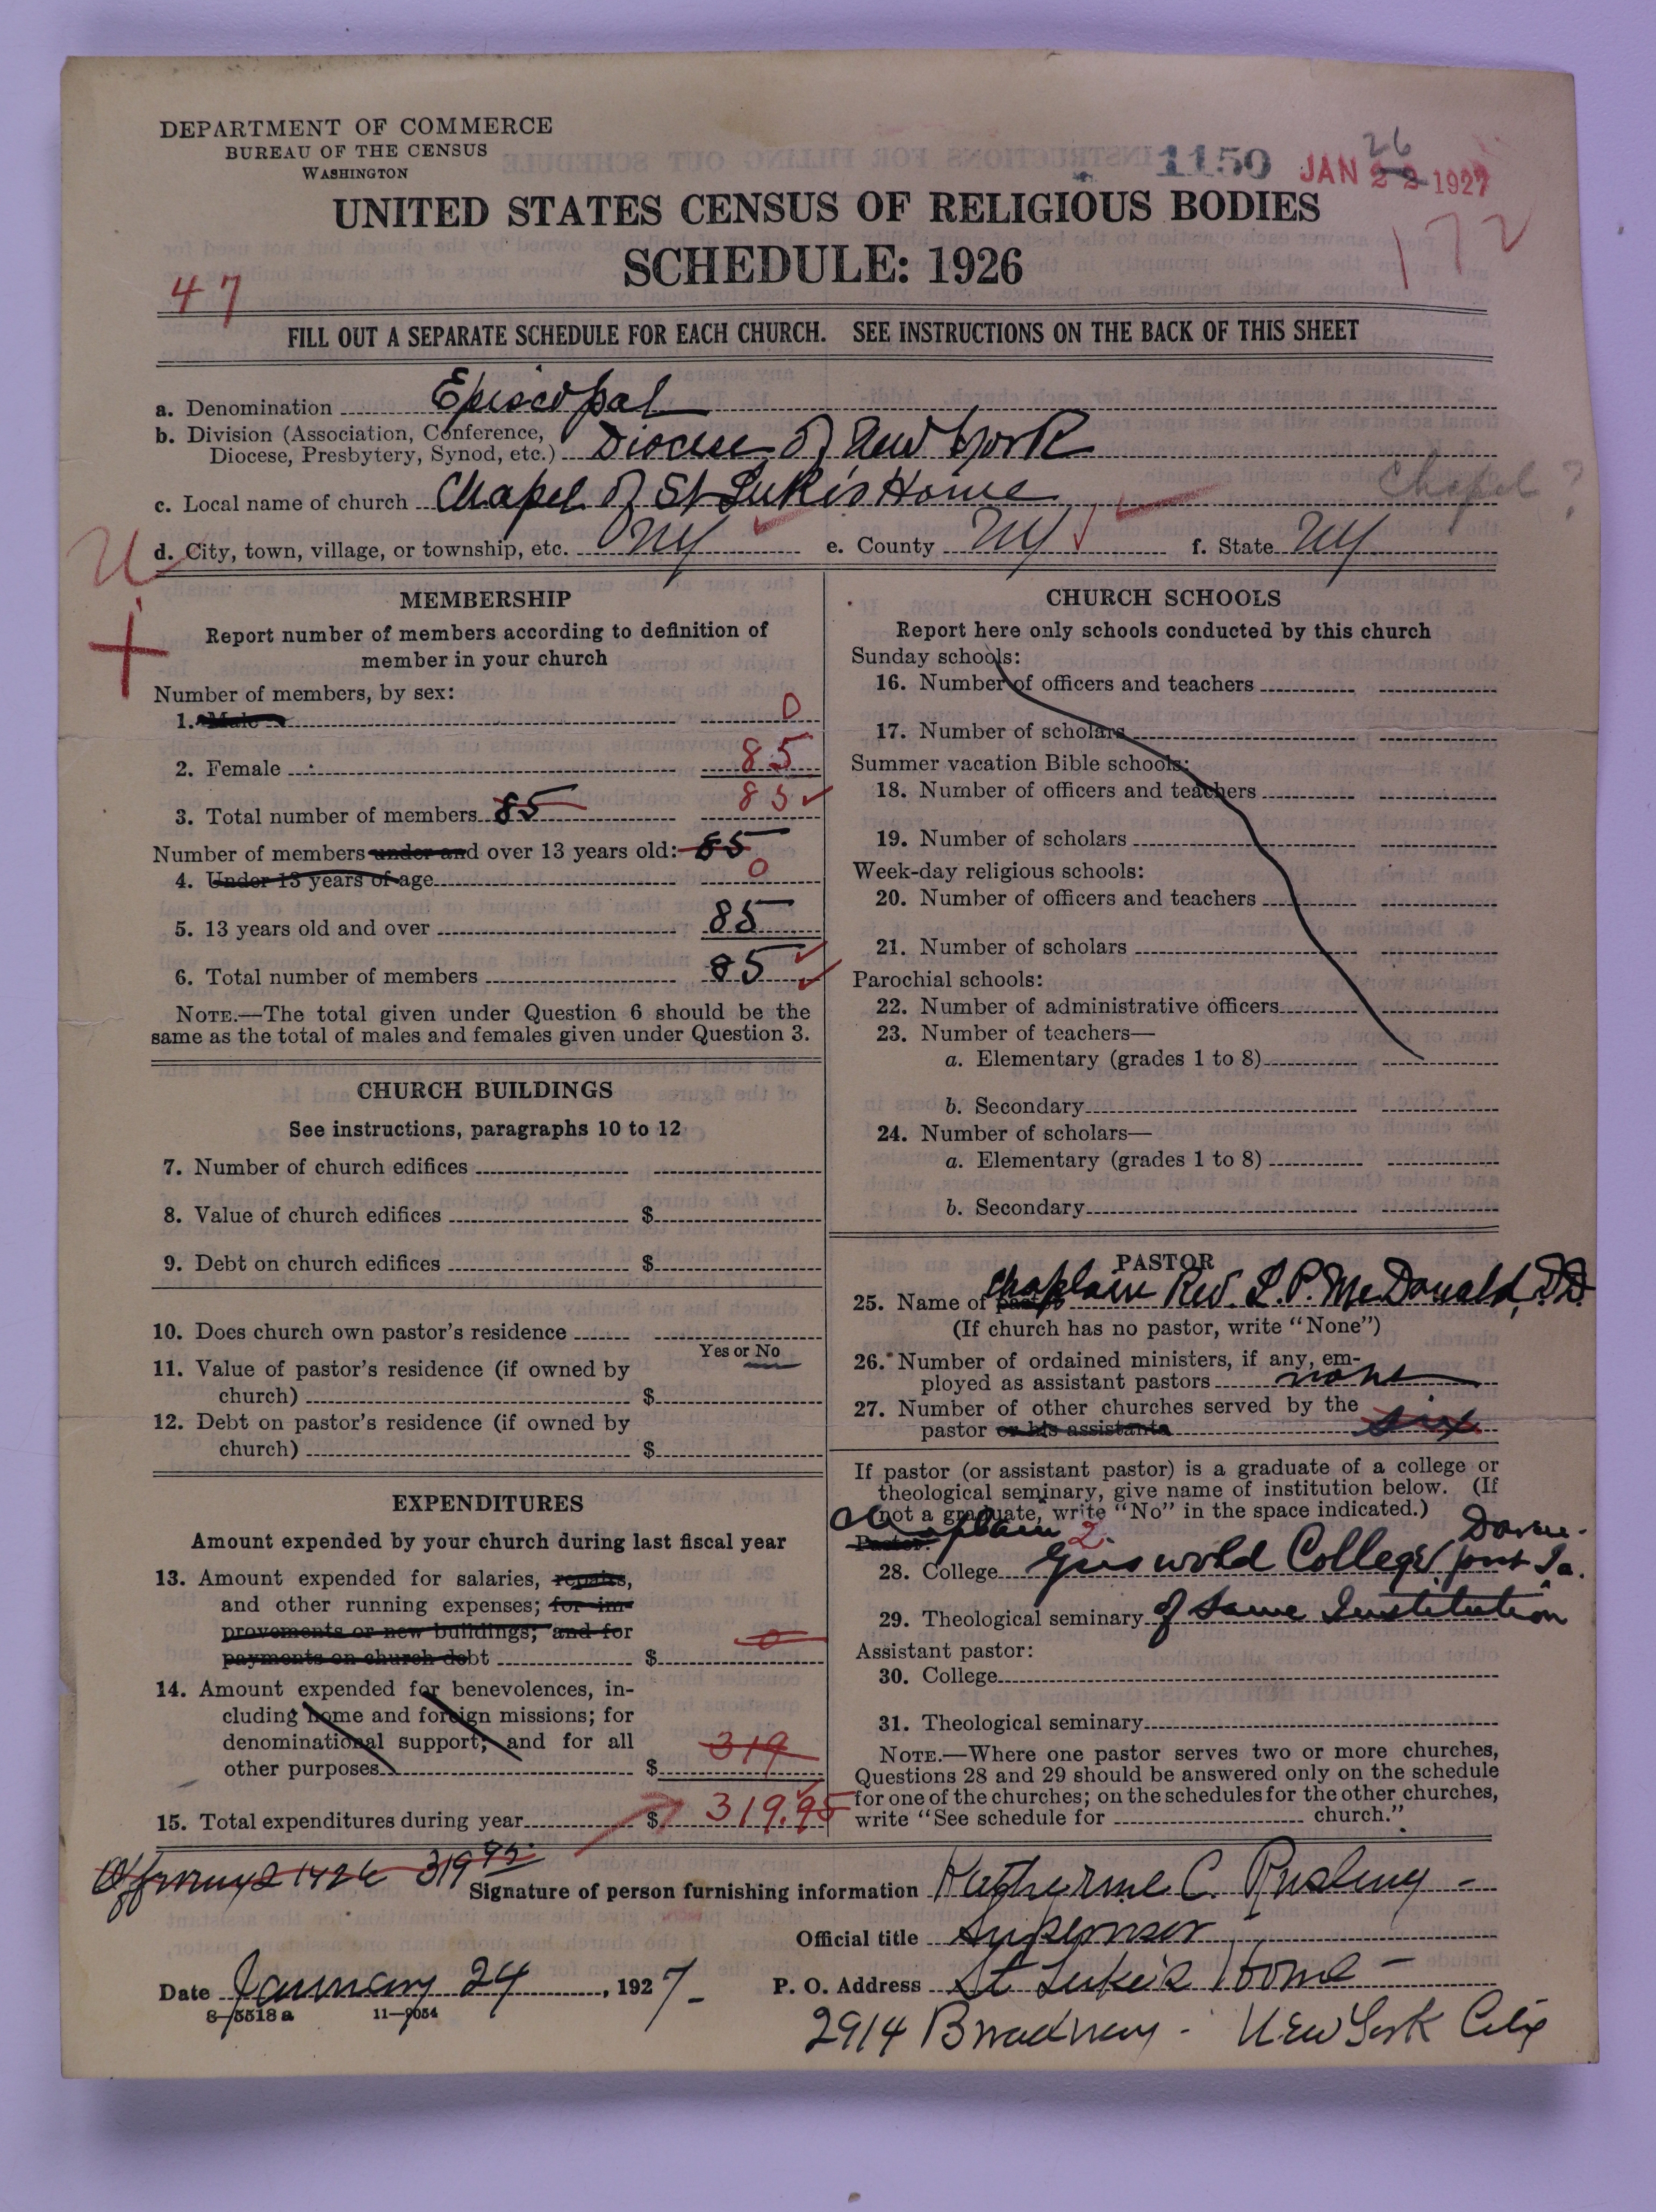 DEPARTMENT OF COMMERCE
BUREAU OF THE CENSUS
WASHINGTON
1150
26
JAN 22 1927
UNITED STATES CENSUS OF RELIGIOUS BODIES
SCHEDULE: 1926
172
47
FILL OUT A SEPARATE SCHEDULE FOR EACH CHURCH. SEE INSTRUCTIONS ON THE BACK OF THIS SHEET
a. Denomination Episcopal
b. Division (Association, Conference,
Diocese, Presbytery, Synod, etc.) Diocese of New York
c. Local name of church Chapel of St Luke's Home Chapel ?
d. City, town, village, or township, etc. NY e. County NY f. State NY
MEMBERSHIP
Report number of members according to definition of
member in your church
Number of members, by sex:
1. Male 0
2. Female 85
3. Total number of members 85 85
Number of members under and over 13 years old: 85
4. Under 13 years of age 0
5. 13 years old and over 85
6. Total number of members 85
NOTE.—The total given under Question 6 should be the
same as the total of males and females given under Question 3.
CHURCH BUILDINGS
See instructions, paragraphs 10 to 12
7. Number of church edifices
8. Value of church edifices $
9. Debt on church edifices $
10. Does church own pastor's residence
Yes or No
11. Value of pastor's residence (if owned by
church) $
12. Debt on pastor's residence (if owned by
church) $
EXPENDITURES
Amount expended by your church during last fiscal year
13. Amount expended for salaries, repairs,
and other running expenses; for im-
provements or new buildings; and for
payments on church debt $ 0
14. Amount expended for benevolences, in-
cluding home and foreign missions; for
denominational support; and for all
other purposes $ 319
15. Total expenditures during year $ 319.95
CHURCH SCHOOLS
Report here only schools conducted by this church
Sunday schools:
16. Number of officers and teachers
17. Number of scholars
Summer vacation Bible schools:
18. Number of officers and teachers
19. Number of scholars
Week-day religious schools:
20. Number of officers and teachers
21. Number of scholars
Parochial schools:
22. Number of administrative officers
23. Number of teachers—
a. Elementary (grades 1 to 8)
b. Secondary
24. Number of scholars—
a. Elementary (grades 1 to 8)
b. Secondary
PASTOR
25. Name of pastor Chaplain Rev. L. P. McDonald, D.D.
(If church has no pastor, write "None")
26. Number of ordained ministers, if any, em-
ployed as assistant pastors none
27. Number of other churches served by the
pastor or his assistants six
If pastor (or assistant pastor) is a graduate of a college or
theological seminary, give name of institution below. (If
not a graduate, write "No" in the space indicated.)
Chaplain
Pastor: 2 Daven-
28. College Griswold College port Ia.
29. Theological seminary of Same Institution
Assistant pastor:
30. College
31. Theological seminary
NOTE.—Where one pastor serves two or more churches,
Questions 28 and 29 should be answered only on the schedule
for one of the churches; on the schedules for the other churches,
write "See schedule for church."
Offerings 1926 319 95
Signature of person furnishing information Katherine C.
Official title Supervisor
Date January 24, 1927 P. O. Address St Luke's Home
8-5518a 11-9054
2914 Broadway - New York City